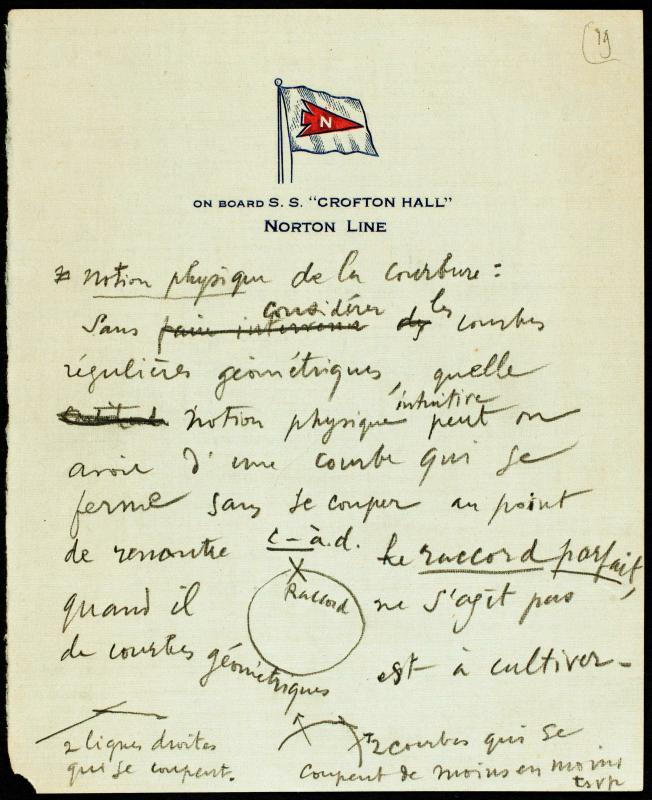 19
N
ON BOARD S. S. "CROFTON HALL"
NORTON LINE
* Notion physique de la courbure :
Sans faire intervenir considérer des les courbes
régulières géométriques, quelle
notion physique intuitive peut on
avoir d'une courbe qui se
ferme sans se couper au point
de rencontre c-à.d. le raccord parfait,
quand il Raccord ne s'agit pas
de courbes géométriques est à cultiver -
2 lignes droites
qui se coupent.
2 courbes qui se
coupent de moins en moins
tsvp